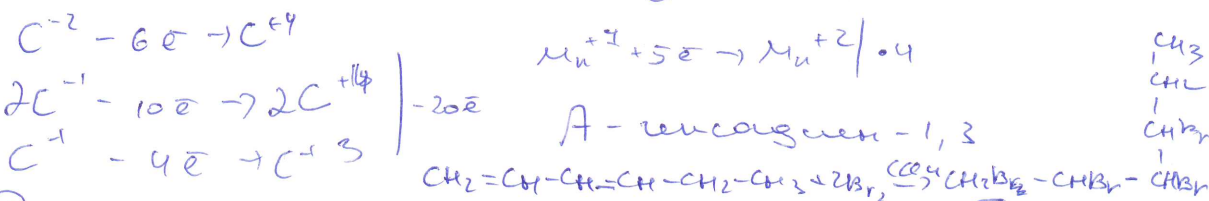 C⁻² – 6ē → C⁺⁴
2C⁻¹ – 10ē → 2C⁺⁴ | –20ē
C⁻¹ – 4ē → C⁺³
Mn⁺⁷ + 5ē → Mn⁺² | •4
А – гексадиен – 1, 3
CH₂=CH–CH=CH–CH₂–CH₃ + 2Br₂ CCl₄→ CH₂Br–CHBr–CHBr
CHBr
CH₂
CH₃